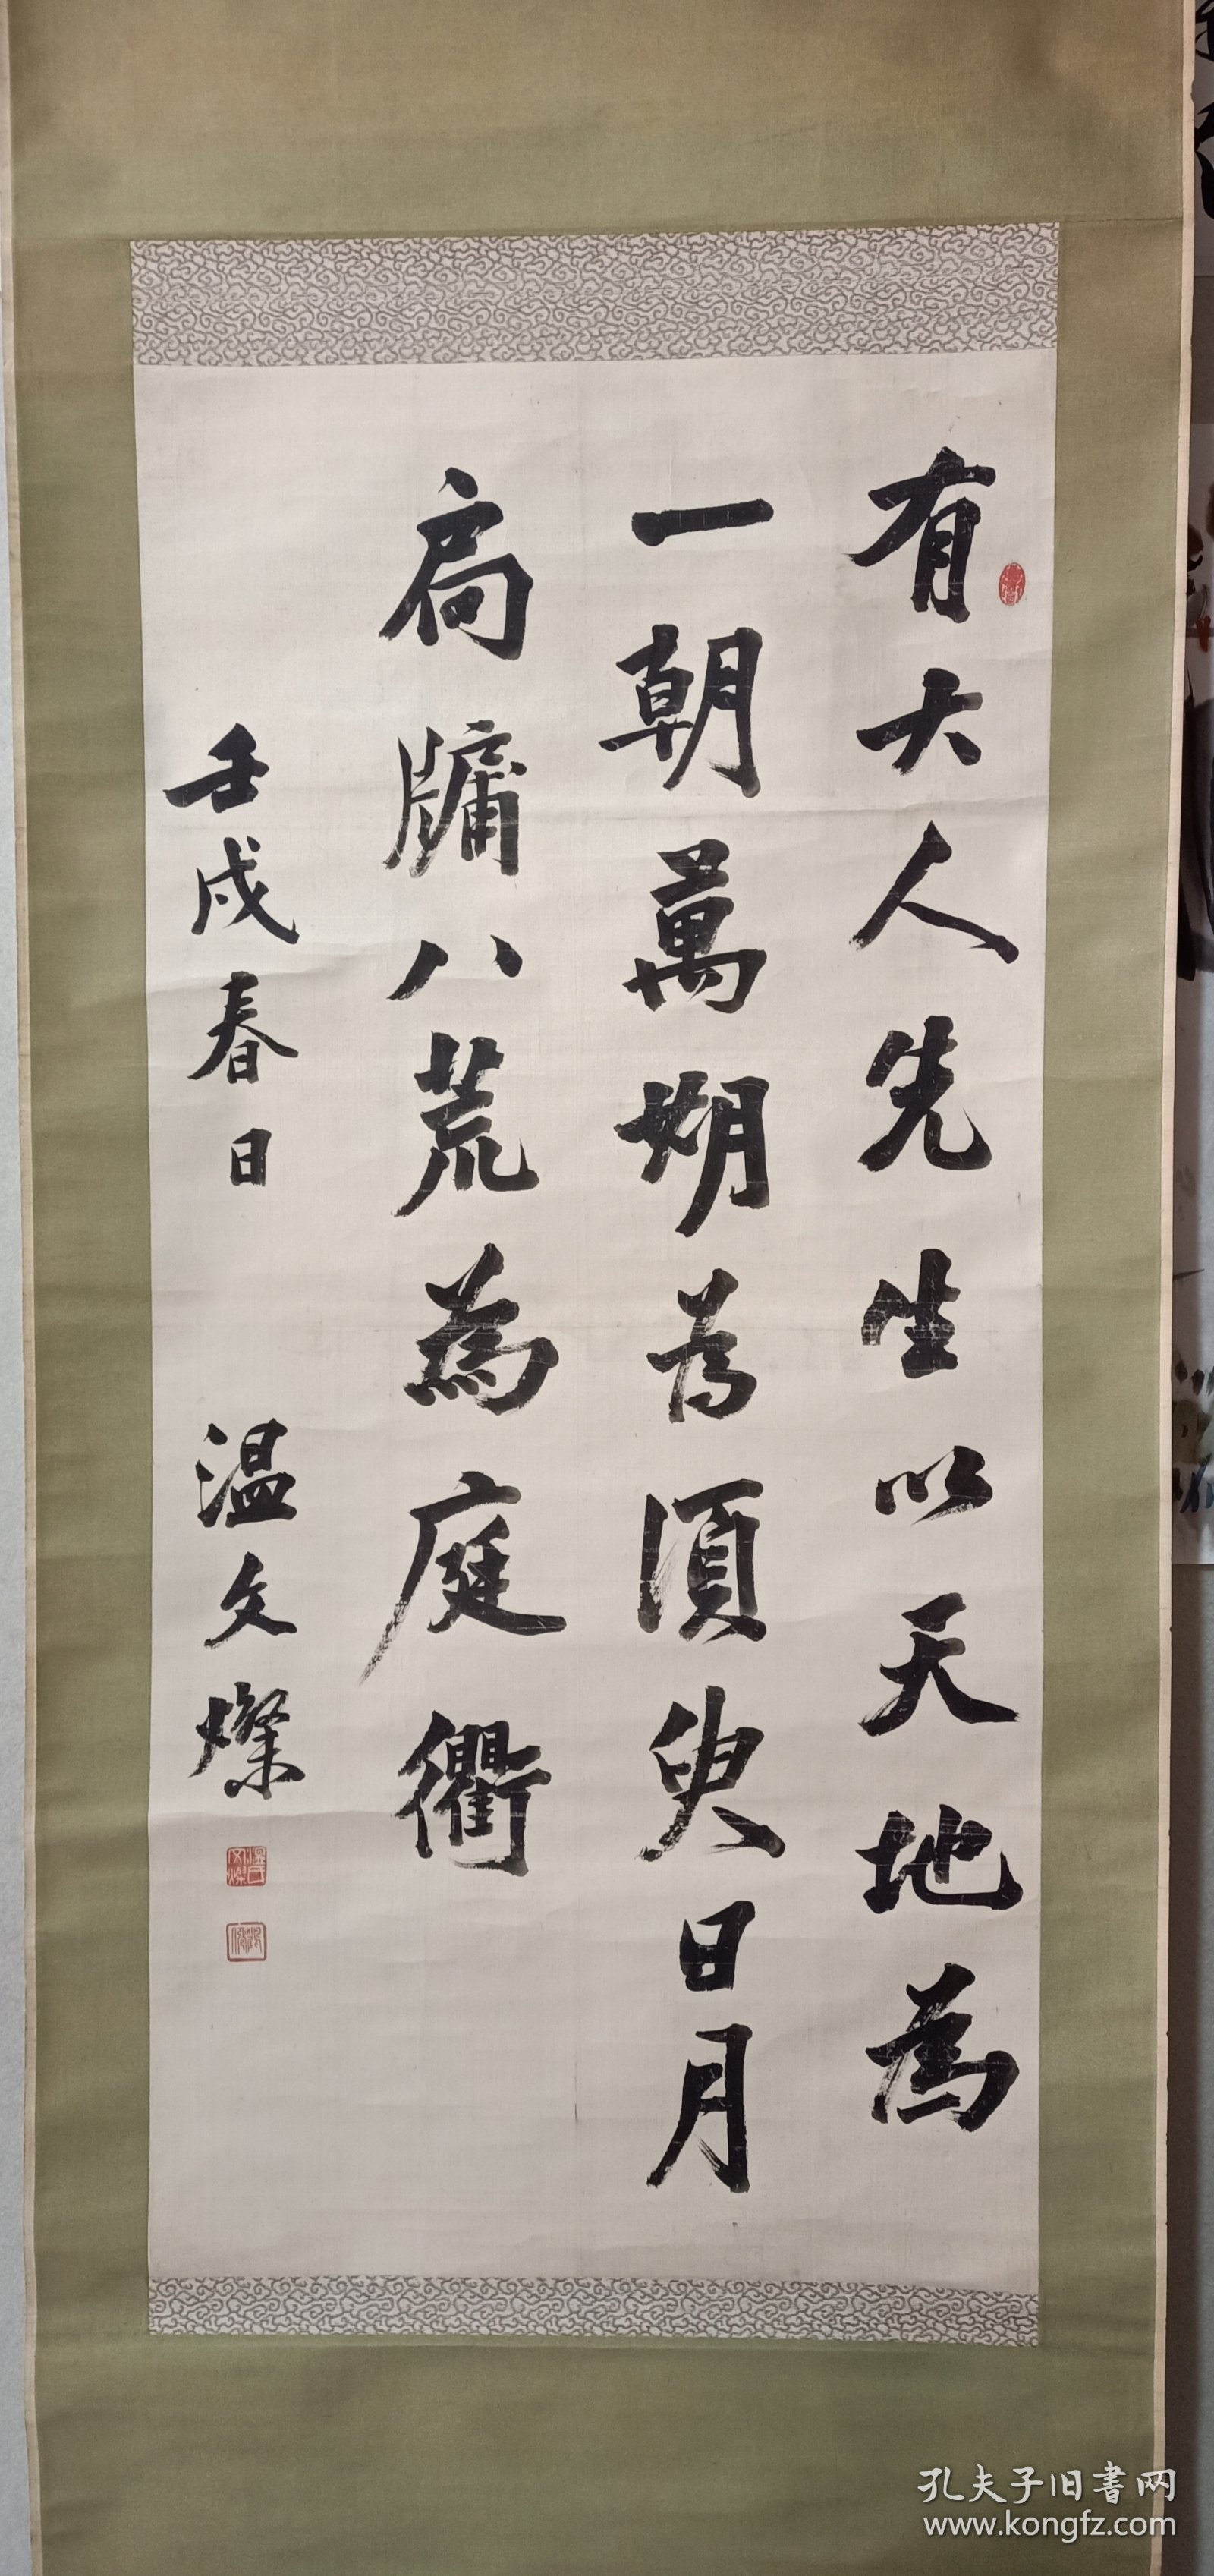 有大人先生以天地為
一朝萬朔為須臾日月
扄牗八荒為庭衢
壬戌春日 温文燦
温氏文燦
孔夫子旧書网
www.kongfz.com